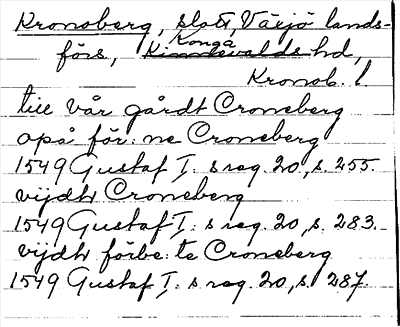 Kronoberg, slott, Växjö lands-
förs, Konga hd,
Kronob. l.
till vår gårdt Croneberg
opå för:ne Croneberg
1549 Gustaf I:s reg. 20, s. 255.
vijdh Croneberg
1549 Gustaf I:s reg. 20, s. 283.
vijdh förbe:te Croneberg
1549 Gustaf I:s reg. 20, s. 287.